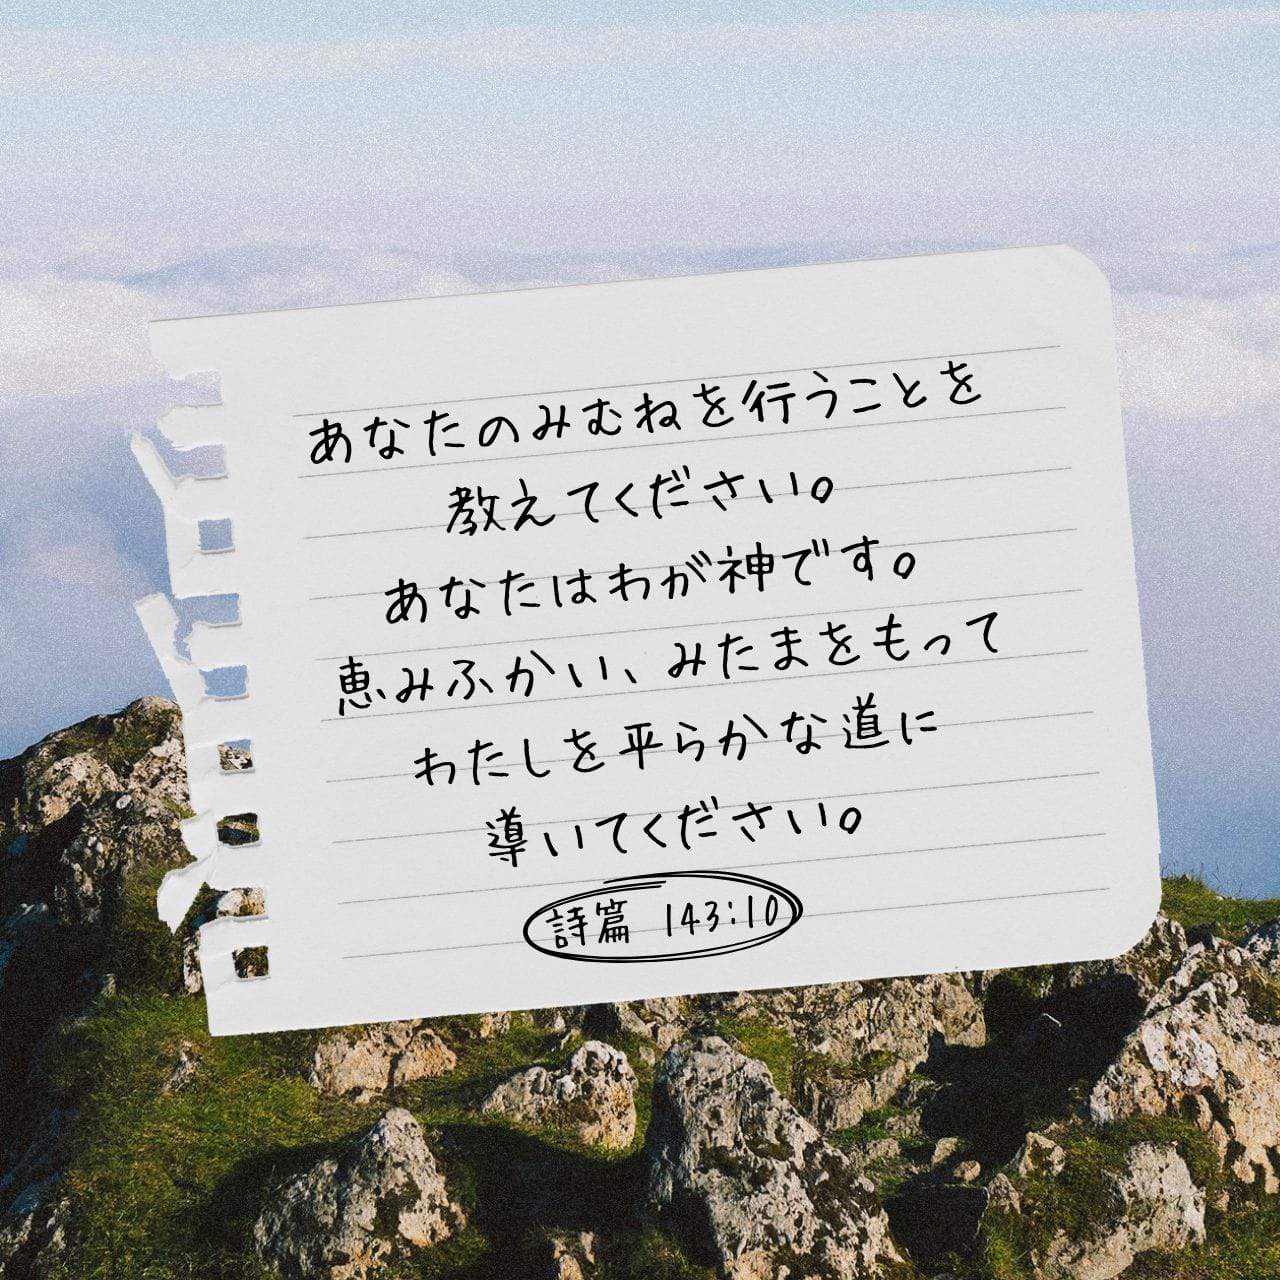 あなたのみむねを行うことを
教えてください。
あなたはわが神です。
恵みふかい、みたまをもって
わたしを平らかな道に
導いてください。
詩篇 143:10